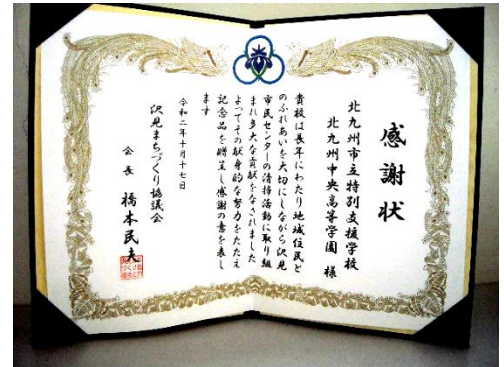 感謝状
北九州市立特別支援学校
北九州中央高等学園 様
貴校は長年にわたり地域住民と
のふれあいを大切にしながら沢見
市民センターの清掃活動に取り組
まれ多大な貢献をなされました
よってその献身的な努力をたたえ
記念品を贈呈し感謝の意を表し
ます
令和二年十月十七日
沢見まちづくり協議会
会長 橋本民夫